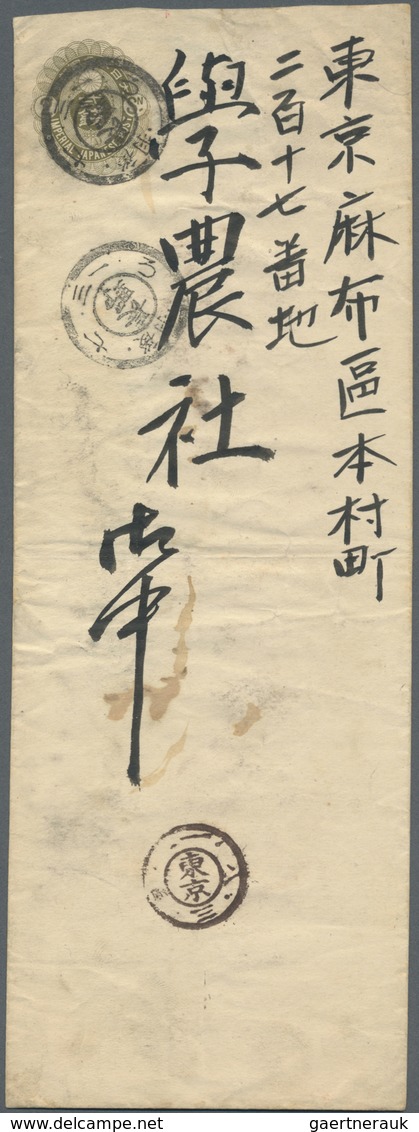 東京麻布區本村町
二百十七番地
學農社
御中
IMPERIAL JAPANESE
東京
delcampe.net
gaertnerauk